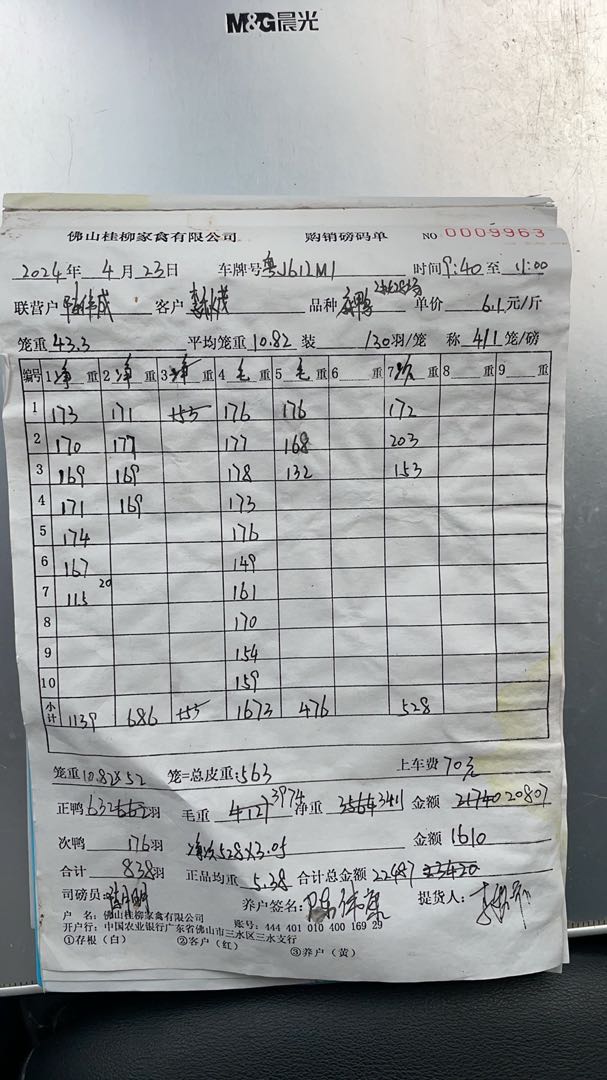 M&G晨光
佛山桂柳家禽有限公司 购销磅码单 NO 0009963
2024年 4月23日 车牌号粤J612M1 时间9:40至11:00
联营户 客户 品种 单价 6.1元/斤
笼重43.3 平均笼重10.82 装 130羽/笼 称 4/1 笼/磅
编号 1净重 2净重 3净重 4毛重 5毛重 6 重 7次重 8 重 9 重
1 173 171 153 176 176 172
2 170 177 177 168 203
3 169 169 178 132 153
4 171 169 173
5 174 176
6 167 149
7 115 20 161
8 170
9 154
10 159
小计 1139 686 153 1673 476 528
笼重10.82×52 笼=总皮重:563 上车费70元
正鸭632 662羽 毛重 4127 3974 净重 3564 3411 金额 21740 20807
次鸭 176羽 净次528×3.05 金额1610
合计 838羽 正品均重 5.38 合计总金额22487 23420
司磅员: 养户签名: 提货人:
户 名:佛山桂柳家禽有限公司
开户行:中国农业银行广东省佛山市三水区三水支行 账号:444 401 010 400 169 29
①存根(白) ②客户(红) ③养户(黄)